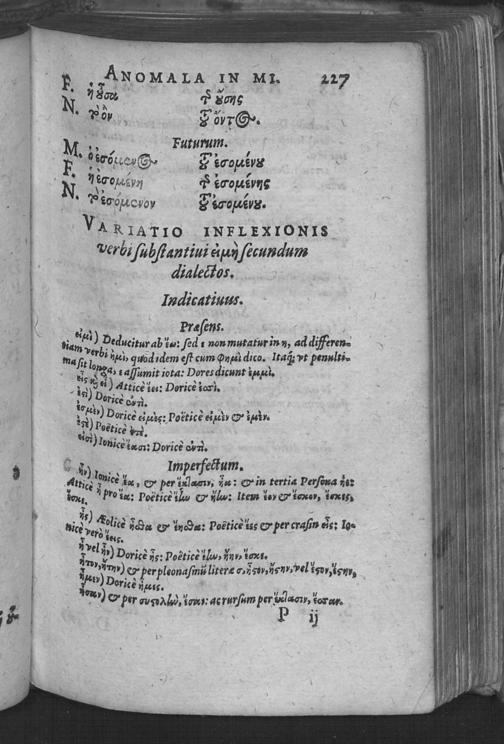 ANOMALA IN MI. 227
F. ἡ οὖσα τῆς οὔσης
N. τὸ ὂν τοῦ ὄντος.
Futurum.
M. ὁ ἐσόμενος τοῦ ἐσομένου
F. ἡ ἐσομένη τῆς ἐσομένης
N. τὸ ἐσόμενον τοῦ ἐσομένου.
VARIATIO INFLEXIONIS
verbi substantiui εἰμὶ secundum
dialectos.
Indicatiuus.
Præsens.
εἰμὶ) Deducitur ab ἔω: sed ε non mutatur in η, ad differen-
tiam verbi ἠμὶ, quòd idem est cum φημὶ dico. Itaq; vt penulti-
ma sit longa, ε assumit iota: Dores dicunt ἐμμί.
εἶς καὶ εἶ) Atticè Doricè ἐσσί.
ἐστὶ) Doricè ἐντί.
ἐσμὲν) Doricè εἰμὲς: Poëticè εἰμὲν & ἐμέν.
ἐστὲ) Poëticè
εἰσὶ) Ionicè ἔασι: Doricè ἐντί.
Imperfectum.
ἦν) Ionicè ἔα, & per ἔκτασιν, ἦα: & in tertia Persona
Atticè ἦ pro ἔα: Poëticè & Item ἔον & ἔσκον, ἔσκες,
ἔσκε.
ἦς) Æolicè ἦσθα & ἔησθα: Poëticè ἔες & per crasin εἶς: Io-
nicè verò ἔεις.
ἦ vel ἦν) Doricè ἦς: Poëticè ἤην, ἔσκε.
ἦτον, ἤτην) & per pleonasmũ literæ σ, ἦστον, ἤστην, vel ἔστον, ἔστην,
ἦμεν) Doricè ἦμες.
ἦσαν) & per συστολὴν, ἔσαν: ac rursum per ἔκτασιν,
P ij